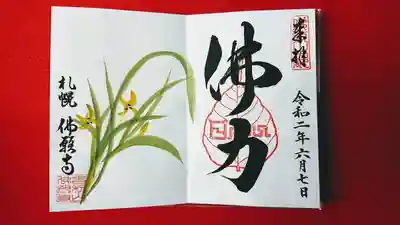 奉拝
令和二年六月七日
佛力
札幌 佛願寺